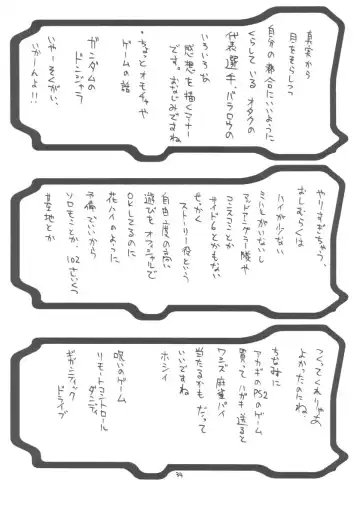 真実から
目をそらしつつ
自分の都合にいいように
くらしている オタクの
代表選手、バラロウの
いろいろな
感想を描くコーナー
です。おなじみですね
・ちょっとオモチャや
ゲームの話
ガンダムの
ドンジャラ
いやーそくがい、
いかーんよ!!
やりすぎちゃう、
おしむらくは
ハイが少ない
ミハルがいないし
マッドアングラー隊や
コンスコンとか
サイド6とかもない
せっかく
ストーリー役という
自由度の高い
遊びをオフィシャルで
OKしてるのに
花ハイのように
予備でいいから
ソロモンとか、102さいくつ
基地とか
つくってくれりゃあ
よかったのにね、
ちなみに
アカギのPS2のゲーム
買って ハガキ送ると
ワシズ麻雀パイ
当たるかも だって
いいですね
ホシイ
呪いのゲーム
リモートコントロール
ダンディ
ギガンティック
ドライブ
34